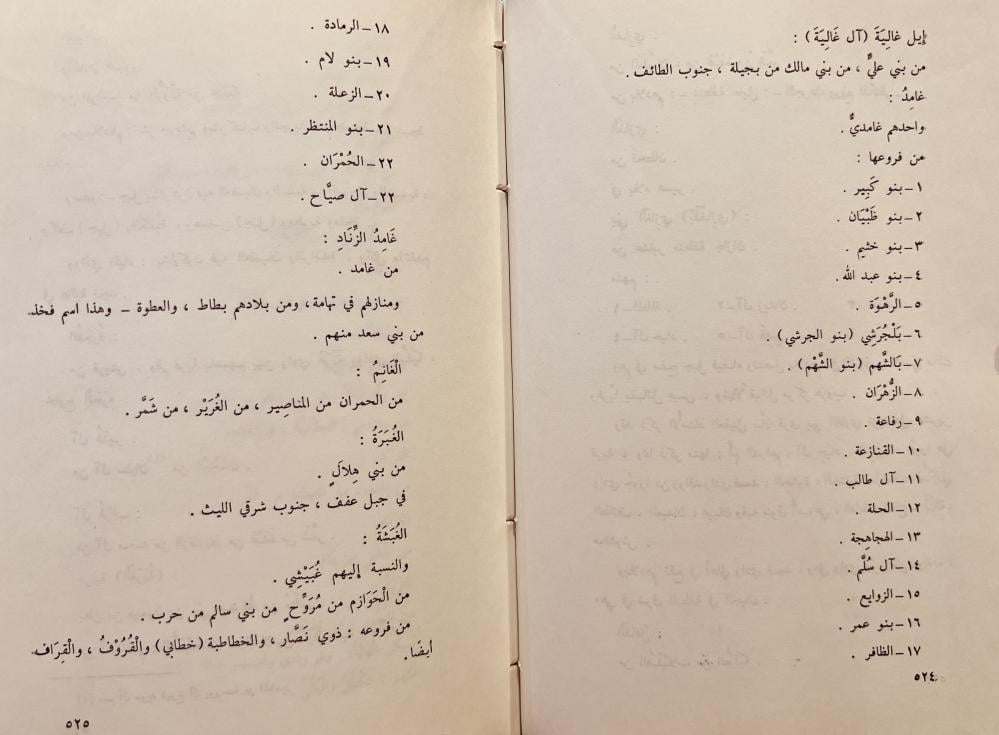 إيل غالِيَةَ (آل غَالِيَةَ) :
من بني عليٍّ ، من بني مالك من بجيلة ، جنوب الطائف .
غامِدُ :
واحدهم غامديٌّ .
من فروعها :
١ – بنو كَبِير .
٢ – بنو ظَبْيَان .
٣ – بنو خثيم .
٤ – بنو عبد الله .
٥ – الرَّهْوَة .
٦ – بَلْجُرَشِي (بنو الجرشي) .
٧ – بَالشَّهم (بنو الشَّهْم) .
٨ – الزُّهْرَان .
٩ – رفاعة .
١٠ – القنازعة .
١١ – آل طالب .
١٢ – الحلة .
١٣ – الهجاهجة .
١٤ – آل سُلَّم .
١٥ – الزوايع .
١٦ – بنو عمر .
١٧ – الظافر .
٥٢٤
١٨ – الرمادة .
١٩ – بنو لام .
٢٠ – الزعلة .
٢١ – بنو المنتظر .
٢٢ – الحُمْرَان .
٢٢ – آل صيَّاح .
غَامِدُ الزِّنَادِ :
من غامد .
ومنازلهم في تهامة ، ومن بلادهم بطاط ، والعطوة – وهذا اسم فخذ
من بني سعد منهم .
الْغَانِمُ :
من الحمران من المناصِير ، من الغُرَيْر ، من شَمَّر .
الغُبَرَةُ :
من بني هِلالٍ .
في جبل عفف ، جنوب شرقي الليث .
الغُبَشَةُ :
والنسبة إليهم غُبَيْشِي .
من الْحَوَازم من مُرَوِّحٍ من بني سالم من حرب .
من فروعه : ذوي نَصَّار ، والخطاطبة (خطابي) والْقُرُوْفُ ، والْقِرَاف
أيضًا .
٥٢٥